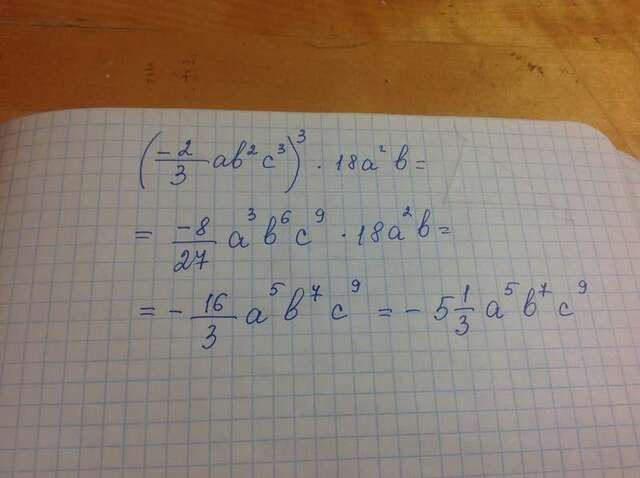 (-2/3 ab²c³)³ · 18a²b =
= -8/27 a³b⁶c⁹ · 18a²b =
= - 16/3 a⁵b⁷c⁹ = - 5 1/3 a⁵b⁷c⁹